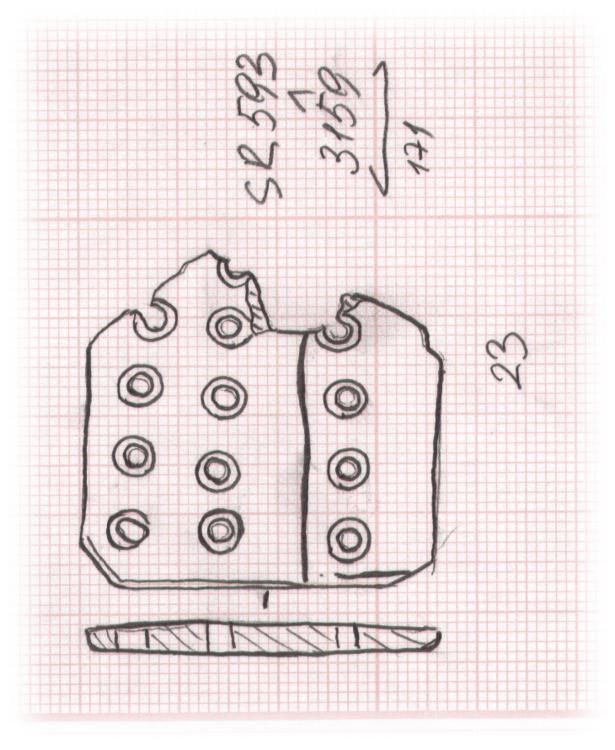 SR 593
3159
171
23